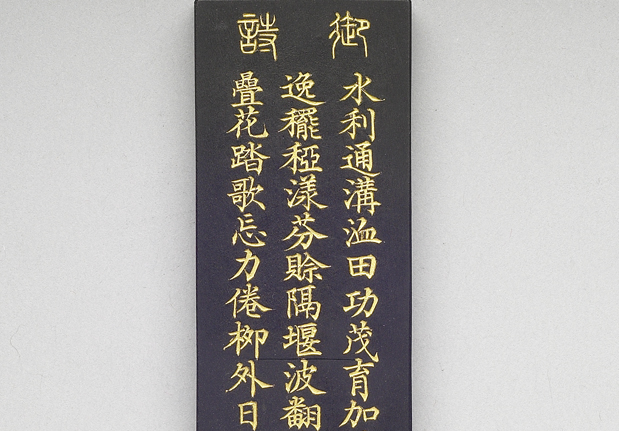 御詩
水利通溝洫田功茂育加
逸䆉稏漾芬賒隅堰波翻
疊花踏歌忘力倦柳外日